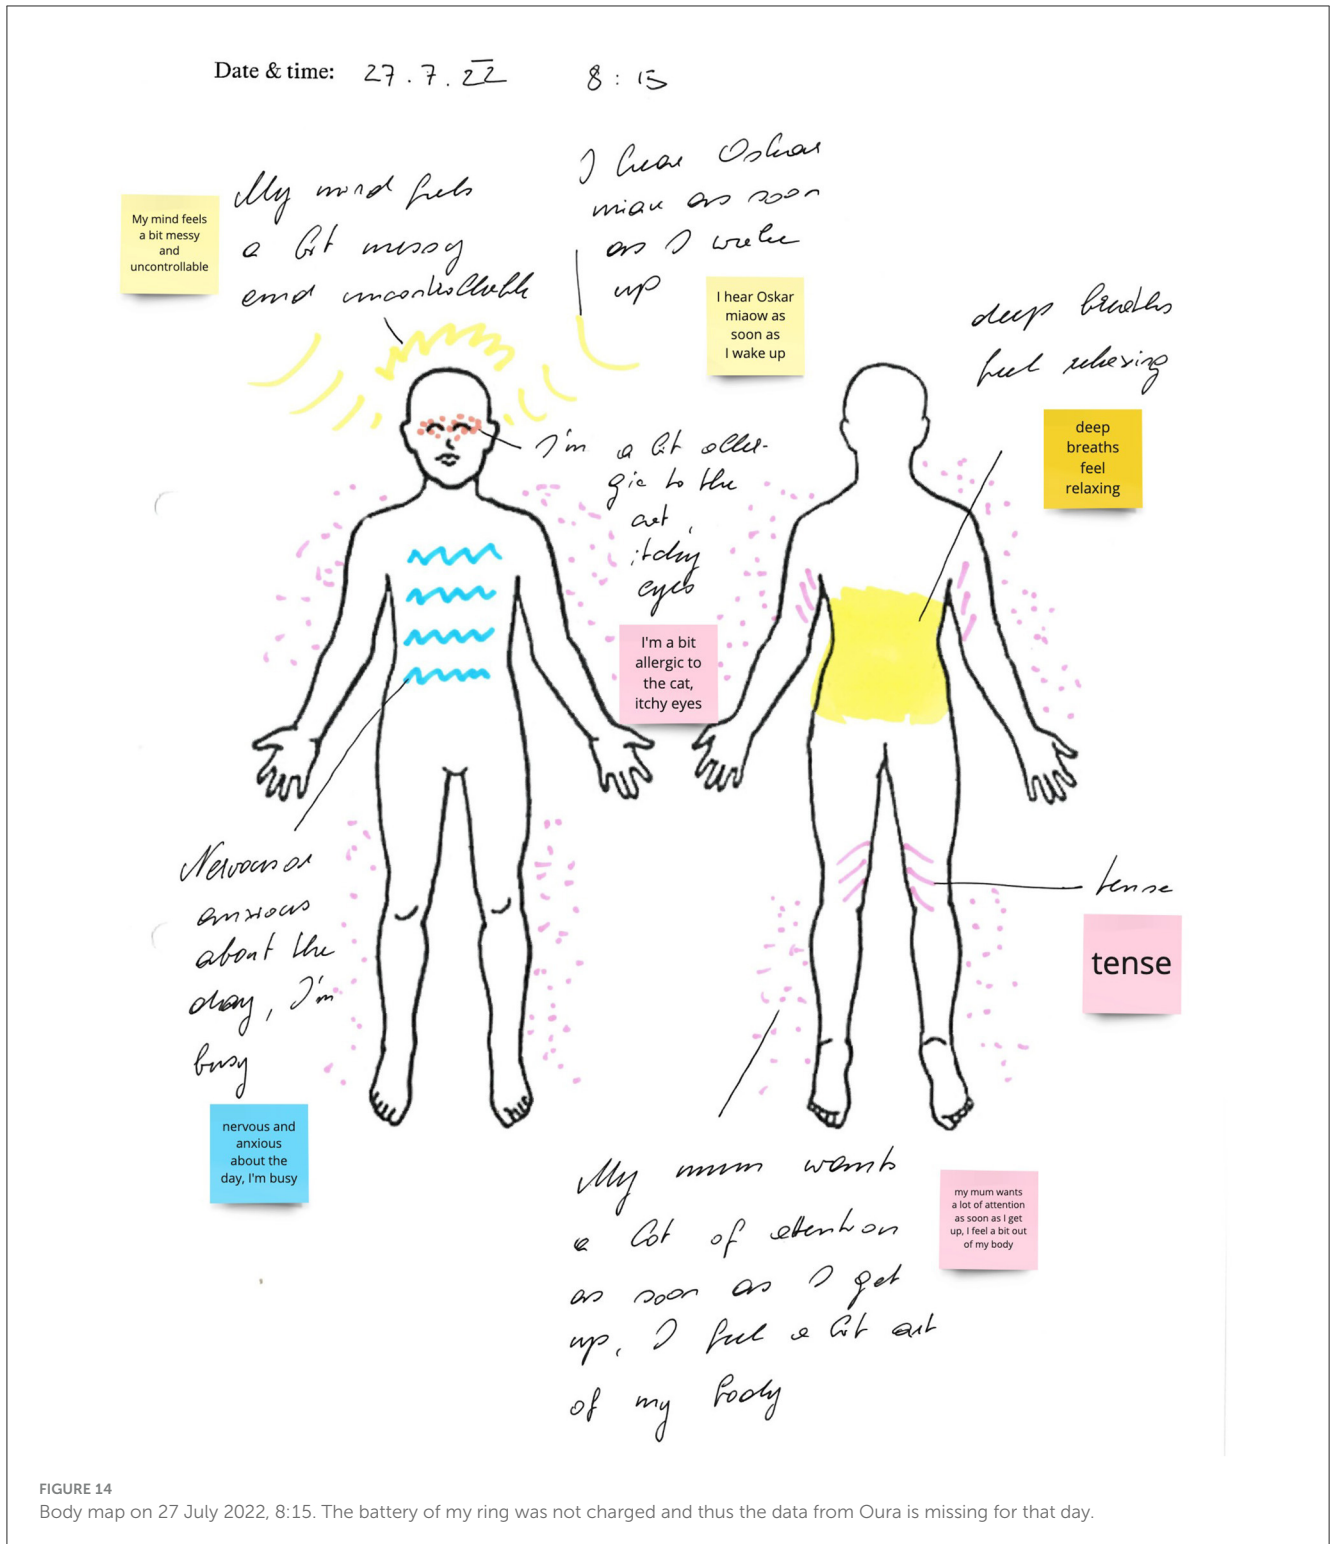 Date & time: 27.7.22 8:15
My mind feels
a bit messy
and uncontrollable
My mind feels
a bit messy
and
uncontrollable
I hear Oskar
miau as soon
as I wake
up
I hear Oskar
miaow as
soon as
I wake up
deep breaths
feel relaxing
deep
breaths
feel
relaxing
I'm a bit aller-
gic to the
cat,
itchy
eyes
I'm a bit
allergic to
the cat,
itchy eyes
Nervous and
anxious
about the
day, I'm
busy
nervous and
anxious
about the
day, I'm busy
tense
tense
My mum wants
a lot of attention
as soon as I get
up, I feel a bit out
of my body
my mum wants
a lot of attention
as soon as I get
up, I feel a bit out
of my body
FIGURE 14
Body map on 27 July 2022, 8:15. The battery of my ring was not charged and thus the data from Oura is missing for that day.